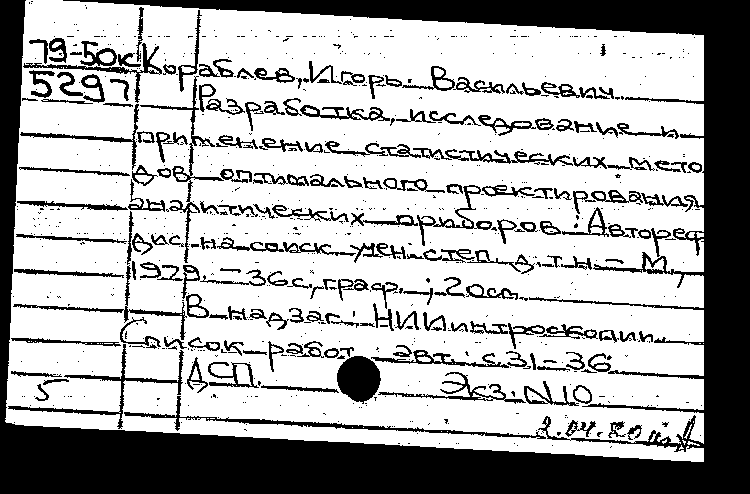 79-50к Кораблев, Игорь Васильевич
5297 Разработка, исследование и
применение статистических мето
дов оптимального проектирования
аналитических приборов: Автореф
дис. на соиск. учен. степ. д. т. н. – М.,
1979. – 36 с., граф. ; 20 см.
В надзаг.: НИИинтроскопии.
Список работ авт.: с. 31-36
ДСП. Экз. N 10
5
2.04.80